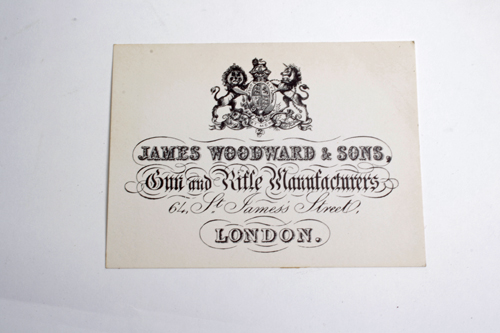 JAMES WOODWARD & SONS,
Gun and Rifle Manufacturers
64, St. James's Street,
LONDON.